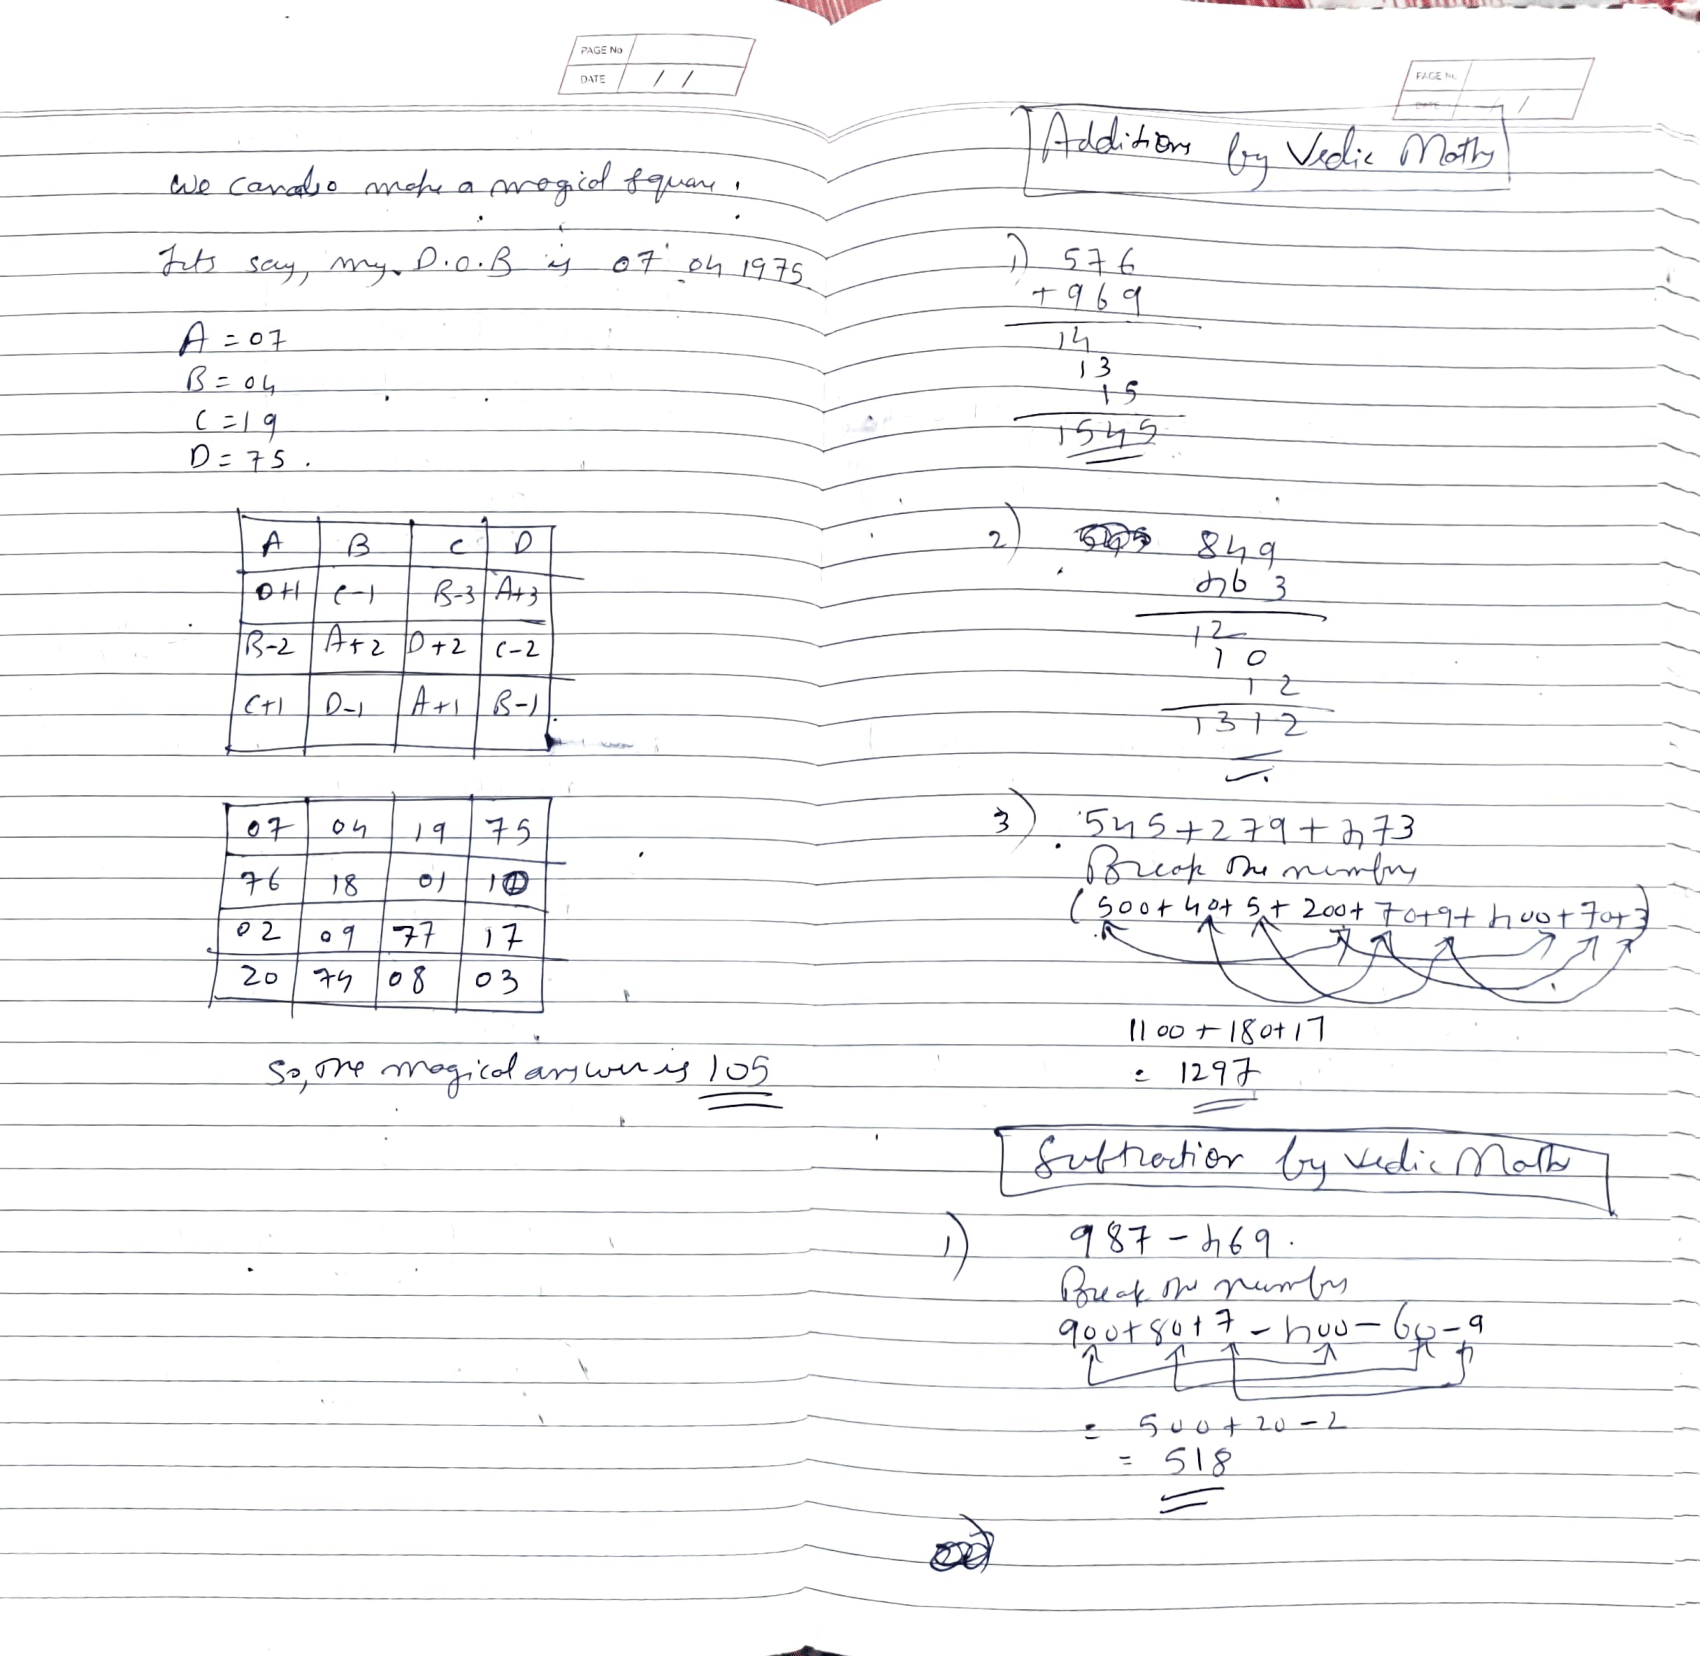 PAGE No
DATE / /
We can also make a magical square.
Lets say, my D.O.B is 07 04 1975
A = 07
B = 04
C = 19
D = 75.
A B C D
D+1 C-1 B-3 A+3
B-2 A+2 D+2 C-2
C+1 D-1 A+1 B-1
07 04 19 75
76 18 01 10
02 09 77 17
20 74 08 03
So, the magical answer is 105
PAGE No.
DATE / /
Addition by Vedic Maths
1) 576
+ 969
14
13
15
1545
2) 849
463
12
10
12
1312
3) 545+279+473
Break the numbers
(500+40+5+200+70+9+400+70+3)
1100+180+17
= 1297
Subtraction by Vedic Maths
1) 987 - 469.
Break the numbers
900+80+7-400-60-9
= 500+20-2
= 518